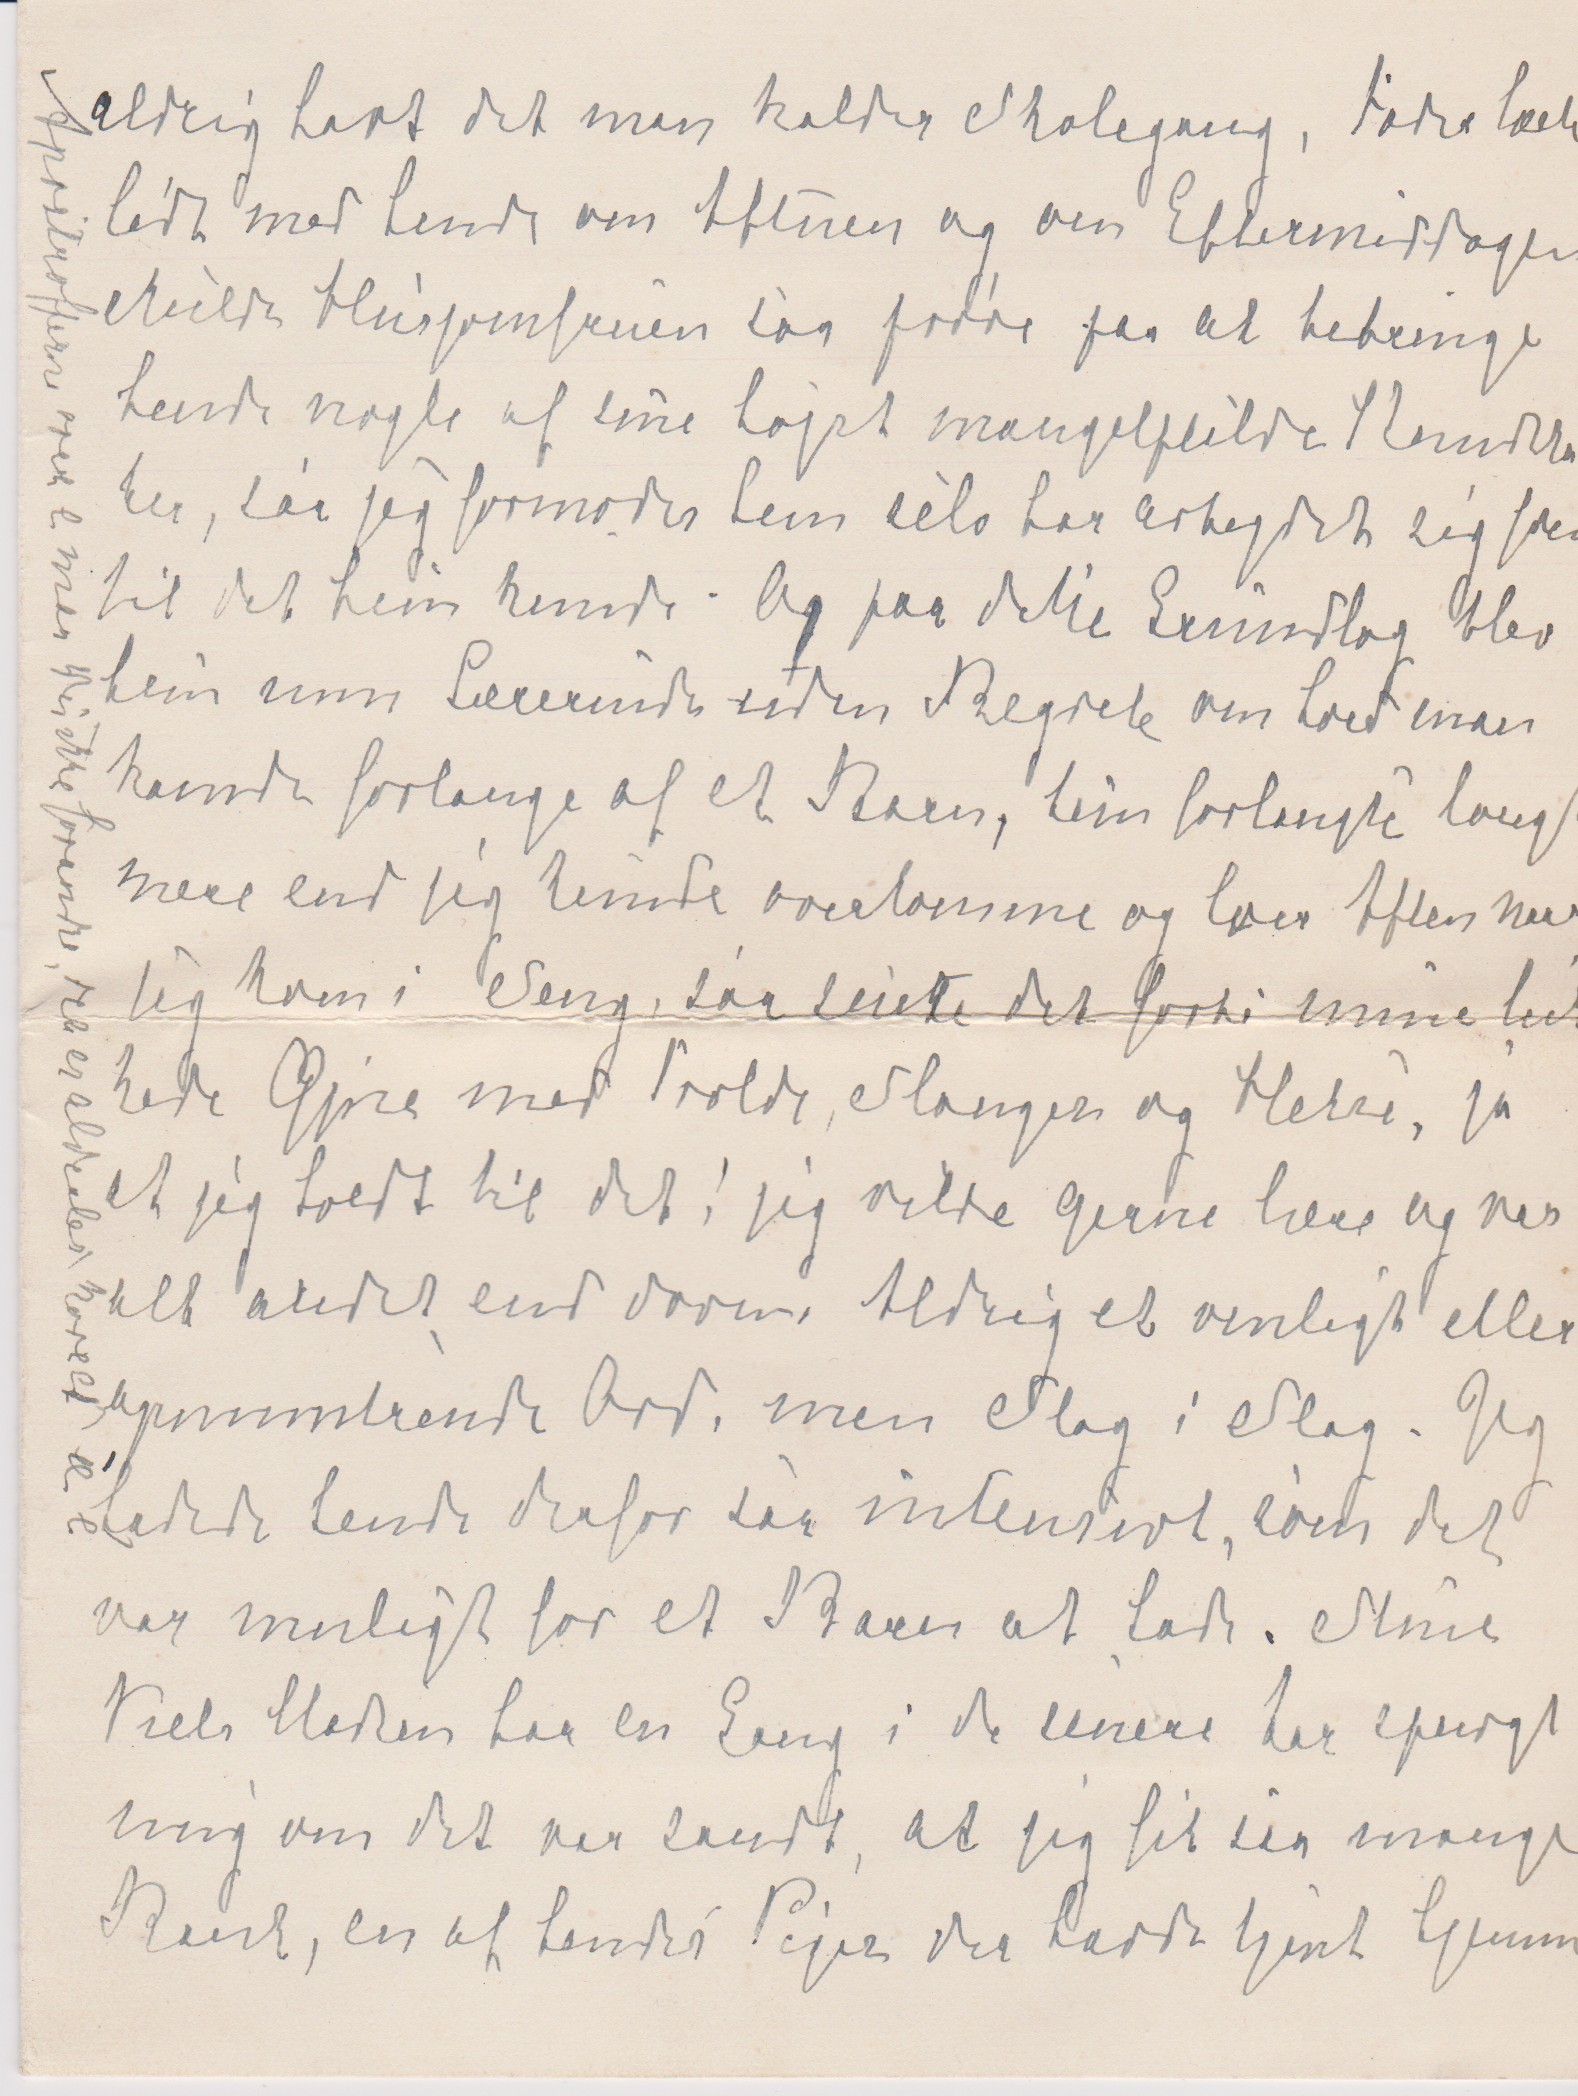 aldrig havt det man kalder Skolegang, Fader læste
lidt med hende om Aftnen og om Eftermiddagen
skulde Husjomfruen saa prøve paa at bebringe
hende nogle af sine højst mangelfulde Kundska
ber, saa jeg formoder hun selv har arbejdet sig frem
til det hun kunde. Og paa dette Grundlag blev
hun min Lærerinde uden Begreb om hvad man
kunde forlange af et Barn, hun forlangte langt
mere end jeg kunde overkomme og hver Aften naar
jeg kom i Seng, saa det for mine
Øjne med Trolde, Slanger og Hekse, ja
at jeg holdt til det! jeg vilde gerne lære og var
alt andet end doven. Aldrig et venligt eller
opmuntrende Ord, men Slag i Slag. Jeg
hadede hende derfor saa intensivt, som det
var muligt for et Barn at hade. Stine
Niels Madsen har en Gang i de senere Aar spurgt
mig om det var sandt, at jeg fik saa mange
Bank, en af hendes Piger der havde tjent hjemme
Apostrofferne over e maa Du ikke forandre, det er aldeles korrekt, é é